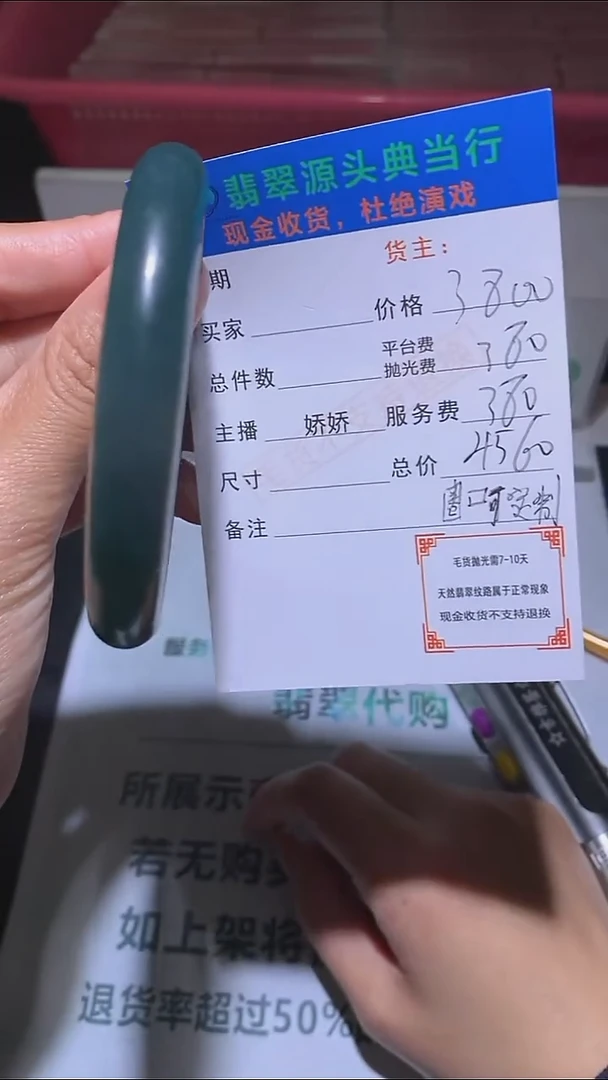 翡翠源头典当行
现金收货，杜绝演戏
货主：
期
买家 价格 3800
总件数 平台费 抛光费 380
主播 娇娇 服务费 380
尺寸 总价 4560
备注 圈口可定制
毛货抛光需7-10天
天然翡翠纹路属于正常现象
现金收货不支持退换
服务
翡翠代购
所展示
若无购
如上架将
退货率超过50%